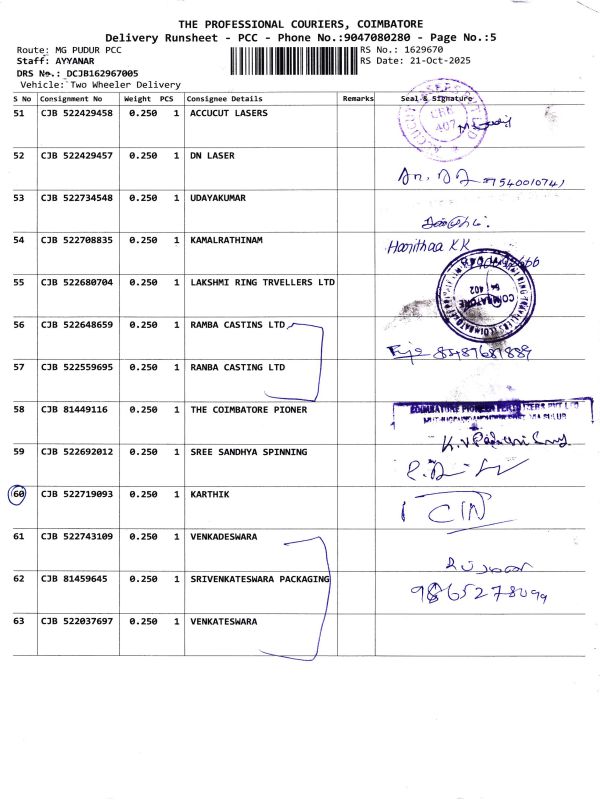 THE PROFESSIONAL COURIERS, COIMBATORE
Delivery Runsheet - PCC - Phone No.:9047080280 - Page No.:5
Route: MG PUDUR PCC
RS No.: 1629670
Staff: AYYANAR
RS Date: 21-Oct-2025
DRS No.: DCJB162967005
Vehicle: Two Wheeler Delivery
S No Consignment No Weight PCS Consignee Details Remarks Seal & Signature
51 CJB 522429458 0.250 1 ACCUCUT LASERS
407
52 CJB 522429457 0.250 1 DN LASER
53 CJB 522734548 0.250 1 UDAYAKUMAR
54 CJB 522708835 0.250 1 KAMALRATHINAM Harithaa KK
55 CJB 522680704 0.250 1 LAKSHMI RING TRVELLERS LTD
COIMBATORE
402
56 CJB 522648659 0.250 1 RAMBA CASTINS LTD
57 CJB 522559695 0.250 1 RANBA CASTING LTD
58 CJB 81449116 0.250 1 THE COIMBATORE PIONER
COIMBATORE PIONEER FERTILIZERS PVT LTD
59 CJB 522692012 0.250 1 SREE SANDHYA SPINNING
60 CJB 522719093 0.250 1 KARTHIK
61 CJB 522743109 0.250 1 VENKADESWARA
62 CJB 81459645 0.250 1 SRIVENKATESWARA PACKAGING
63 CJB 522037697 0.250 1 VENKATESWARA